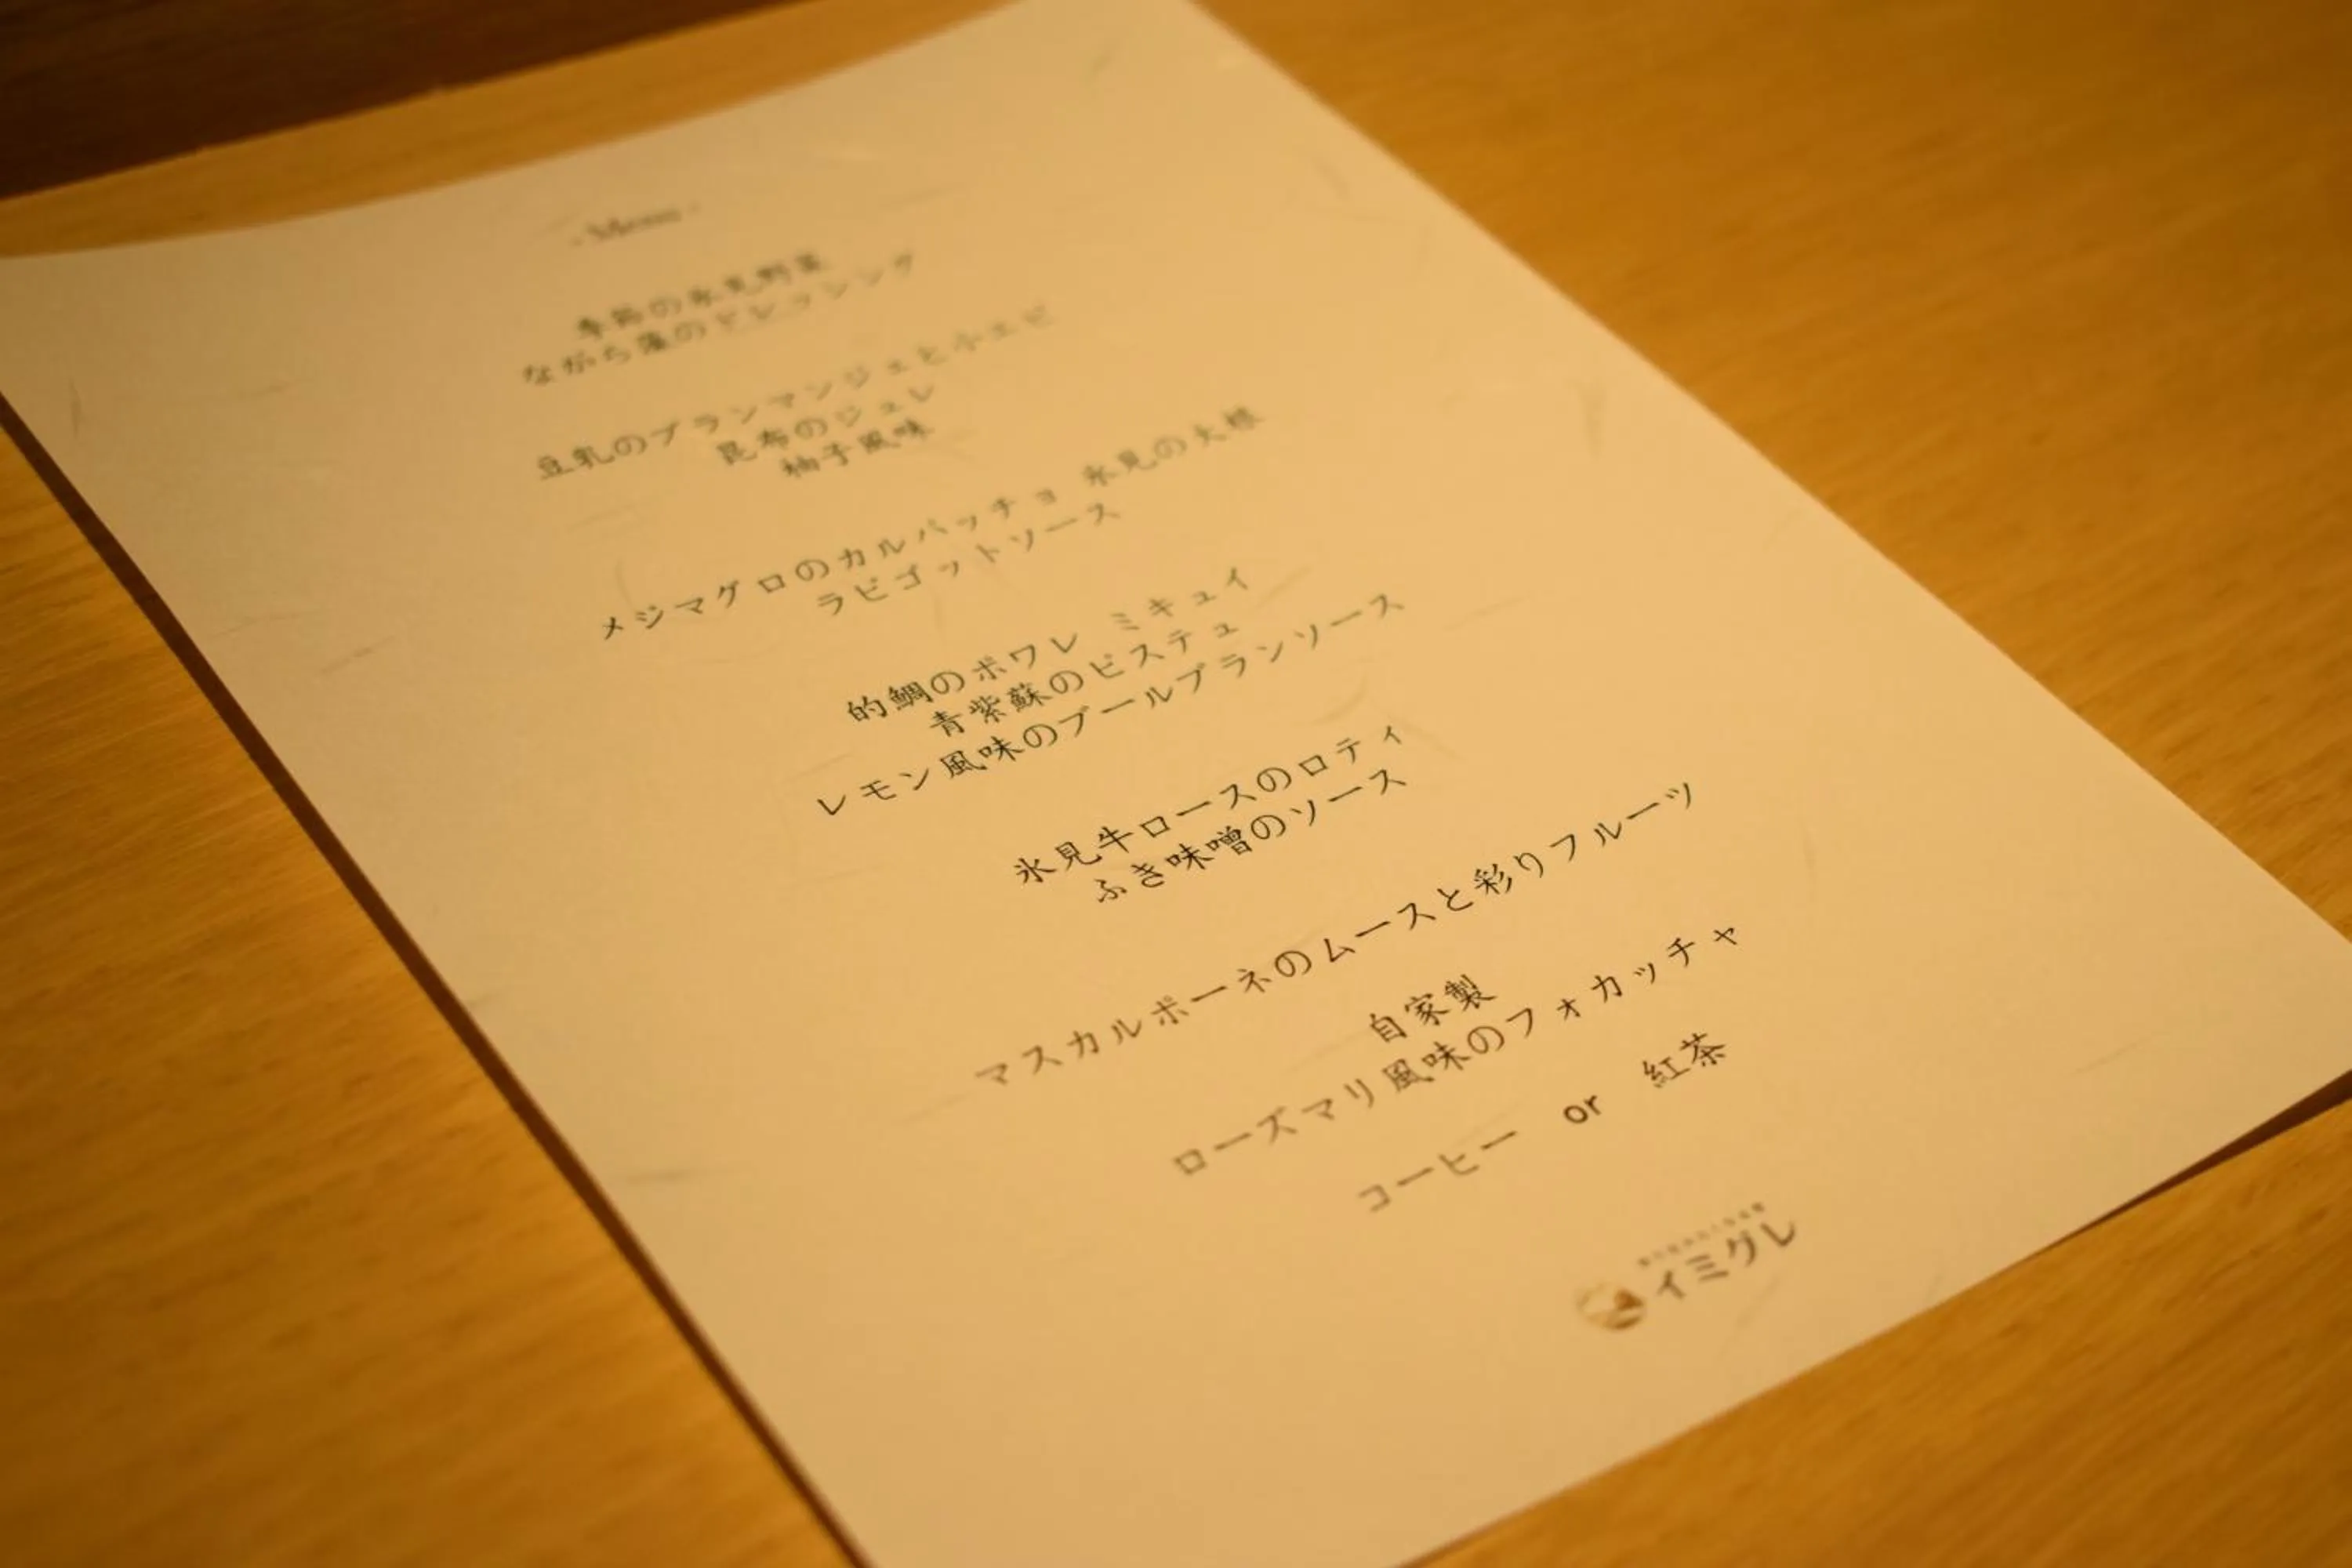 - Menu -
季節の氷見野菜
ながら藻のドレッシング
豆乳のブランマンジェと小エビ
昆布のジュレ
柚子風味
メジマグロのカルパッチョ 氷見の大根
ラビゴットソース
的鯛のポワレ ミキュイ
青紫蘇のピステュ
レモン風味のブールブランソース
氷見牛ロースのロティ
ふき味噌のソース
マスカルポーネのムースと彩りフルーツ
自家製
ローズマリ風味のフォカッチャ
コーヒー or 紅茶
イミグレ